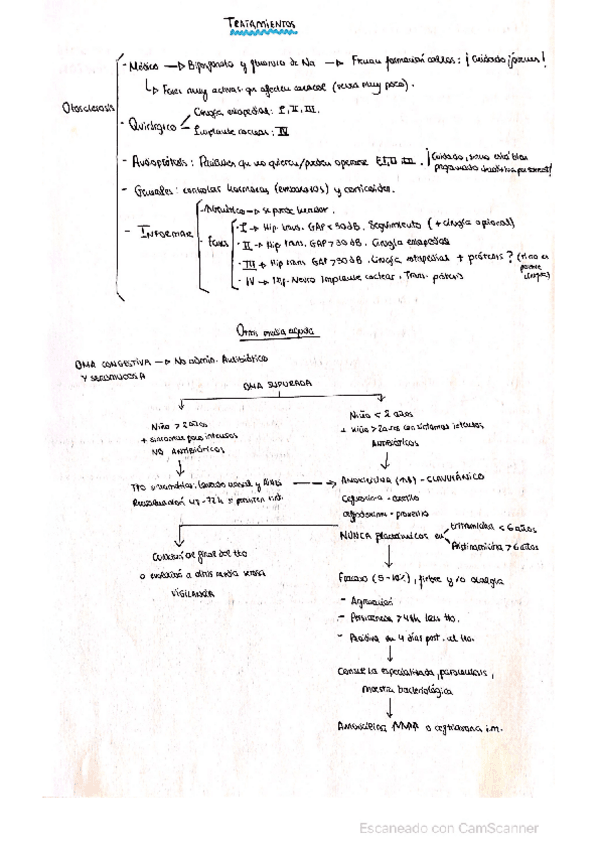 TRATAMIENTOS
Otosclerosis
- Médico → Bifosfonato y fluoruro de Na → Frenan formación callos: ¡Cuidado jóvenes!
↳ Fases muy activas que afecten caracol (se usa muy poco).
- Quirúrgico
Cirugía estapedial: I, II, III.
Implante coclear: IV
- Audioprótesis: Pacientes que no quieran/puedan operarse EI, II, III. ¡Cuidado,
- Generales: controlar hormonas (embarazos) y corticoides.
- INFORMAR
- Fases
- I → Hip. trans. GAP < 30 dB. Seguimiento (+ cirugía opcional)
- II → Hip trans. GAP > 30 dB. Cirugía estapedial
- III → Hip trans GAP > 30 dB. Cirugía estapedial + prótesis?
- IV → Hip. Neuro Implante coclear. Trans. prótesis
Otitis media aguda
OMA CONGESTIVA → No admin. Antibiótico
Y SEROMUCOSA
OMA SUPURADA
Niño > 2 años
+ síntomas poco intensos
NO ANTIBIÓTICOS
Niño < 2 años
+ niño > 2 años con síntomas intensos
ANTIBIÓTICOS
Tto sintomático: lavado nasal y AINEs
Reevaluación 48-72 h si persisten
AMOXICILINA - CLAVULÁNICO
Cefuroxima - axetilo
Cefpodoxima - proxetilo
NUNCA β-lactámicos en
eritromicina < 6 años
Pristinamicina > 6 años
Curación al final del tto
o evolución a otitis media serosa
VIGILANCIA
Fracaso (5-10%), fiebre y/o otalgia
- Agravación
- Persistencia > 48h tras tto.
- Reaparición en 4 días post. al tto.
Consulta especializada, paracentesis,
muestra bacteriológica
Amoxicilina o ceftriaxona i.m.
Escaneado con CamScanner